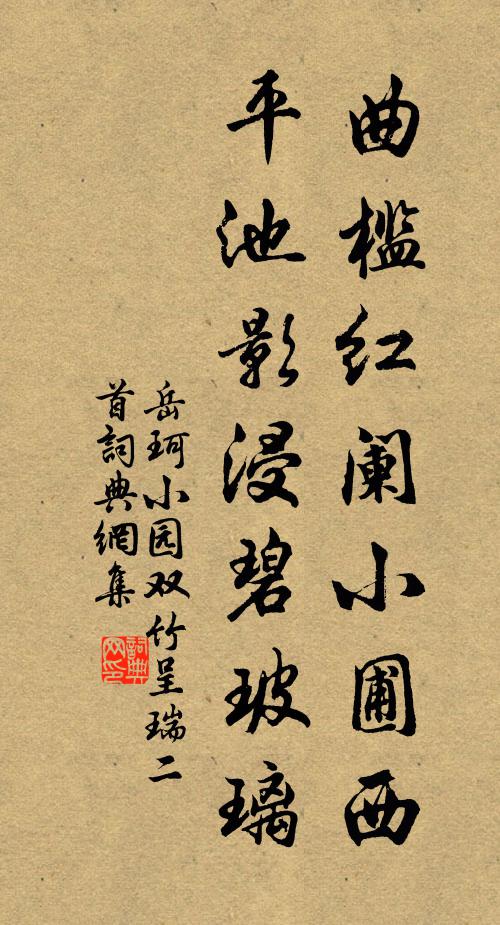 曲槛红阑小圃西
平池影浸碧玻璃
岳珂小园双竹呈瑞二
首詞典網集
詞典
网印